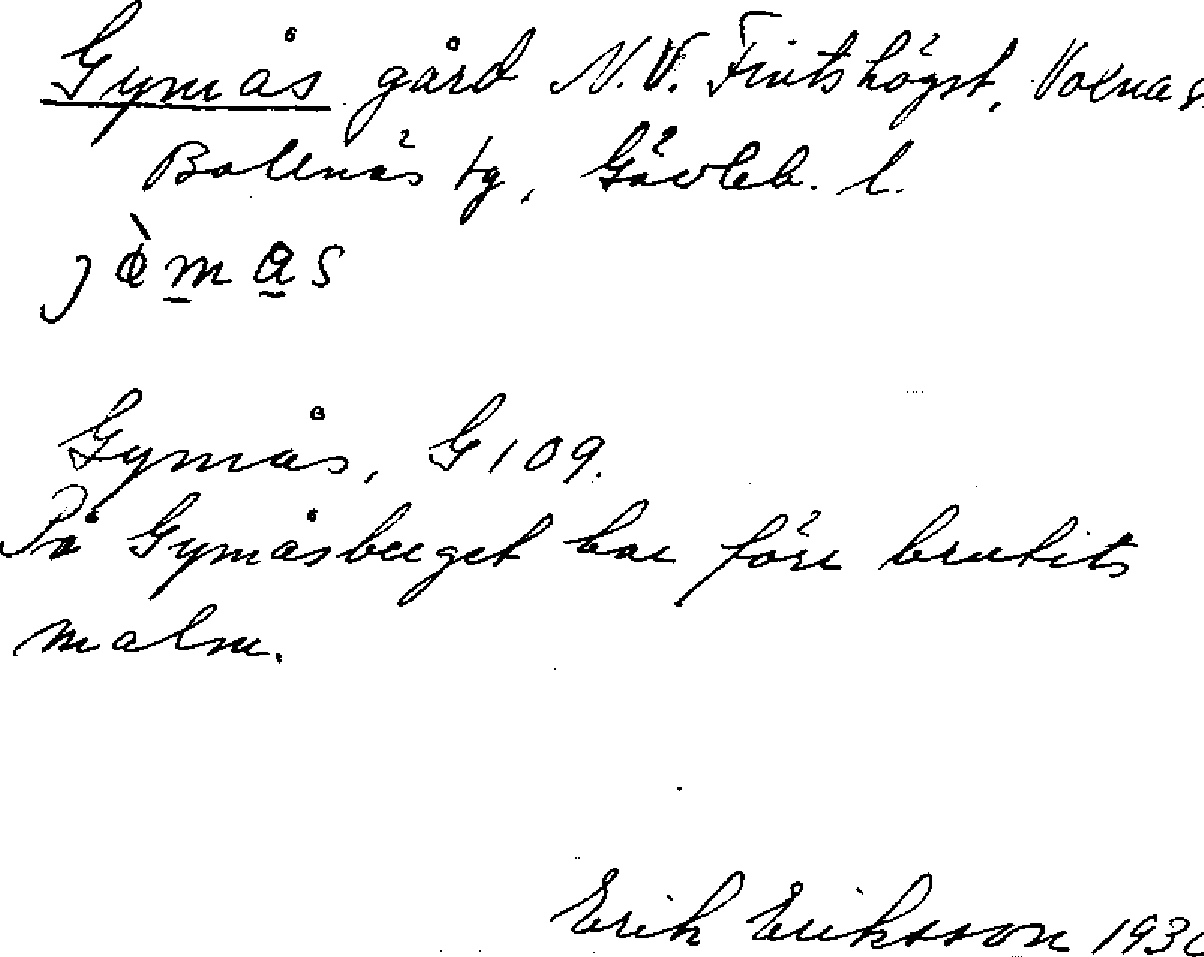 Gymås gård N.V. Fintshögst, Voxna s
Bollnäs tg, Gävleb. l.
Gymås, G 109.
På Gymåsberget har förr brutits
malm.
Erik Eriksson 193